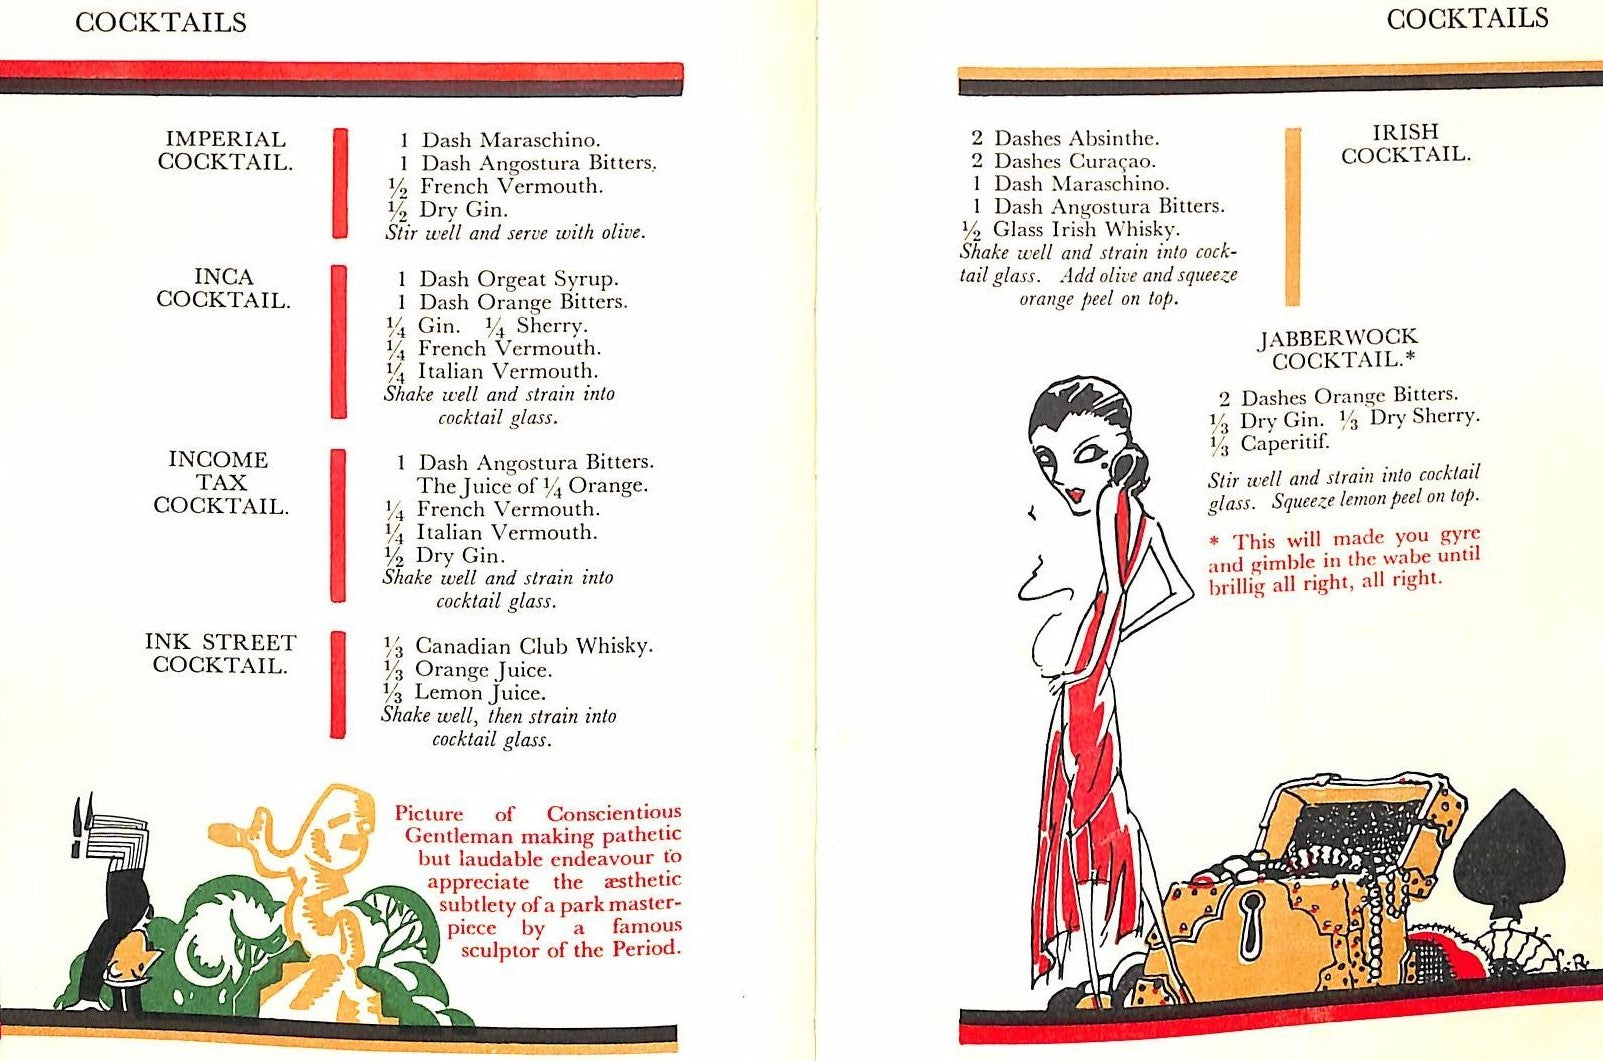 COCKTAILS
IMPERIAL
COCKTAIL.
1 Dash Maraschino.
1 Dash Angostura Bitters.
½ French Vermouth.
½ Dry Gin.
Stir well and serve with olive.
INCA
COCKTAIL.
1 Dash Orgeat Syrup.
1 Dash Orange Bitters.
¼ Gin. ¼ Sherry.
¼ French Vermouth.
¼ Italian Vermouth.
Shake well and strain into
cocktail glass.
INCOME
TAX
COCKTAIL.
1 Dash Angostura Bitters.
The Juice of ¼ Orange.
¼ French Vermouth.
¼ Italian Vermouth.
½ Dry Gin.
Shake well and strain into
cocktail glass.
INK STREET
COCKTAIL.
⅓ Canadian Club Whisky.
⅓ Orange Juice.
⅓ Lemon Juice.
Shake well, then strain into
cocktail glass.
Picture of Conscientious
Gentleman making pathetic
but laudable endeavour to
appreciate the æsthetic
subtlety of a park master-
piece by a famous
sculptor of the Period.
COCKTAILS
2 Dashes Absinthe.
2 Dashes Curaçao.
1 Dash Maraschino.
1 Dash Angostura Bitters.
½ Glass Irish Whisky.
Shake well and strain into cock-
tail glass. Add olive and squeeze
orange peel on top.
IRISH
COCKTAIL.
JABBERWOCK
COCKTAIL.*
2 Dashes Orange Bitters.
⅓ Dry Gin. ⅓ Dry Sherry.
⅓ Caperitif.
Stir well and strain into cocktail
glass. Squeeze lemon peel on top.
* This will made you gyre
and gimble in the wabe until
brillig all right, all right.